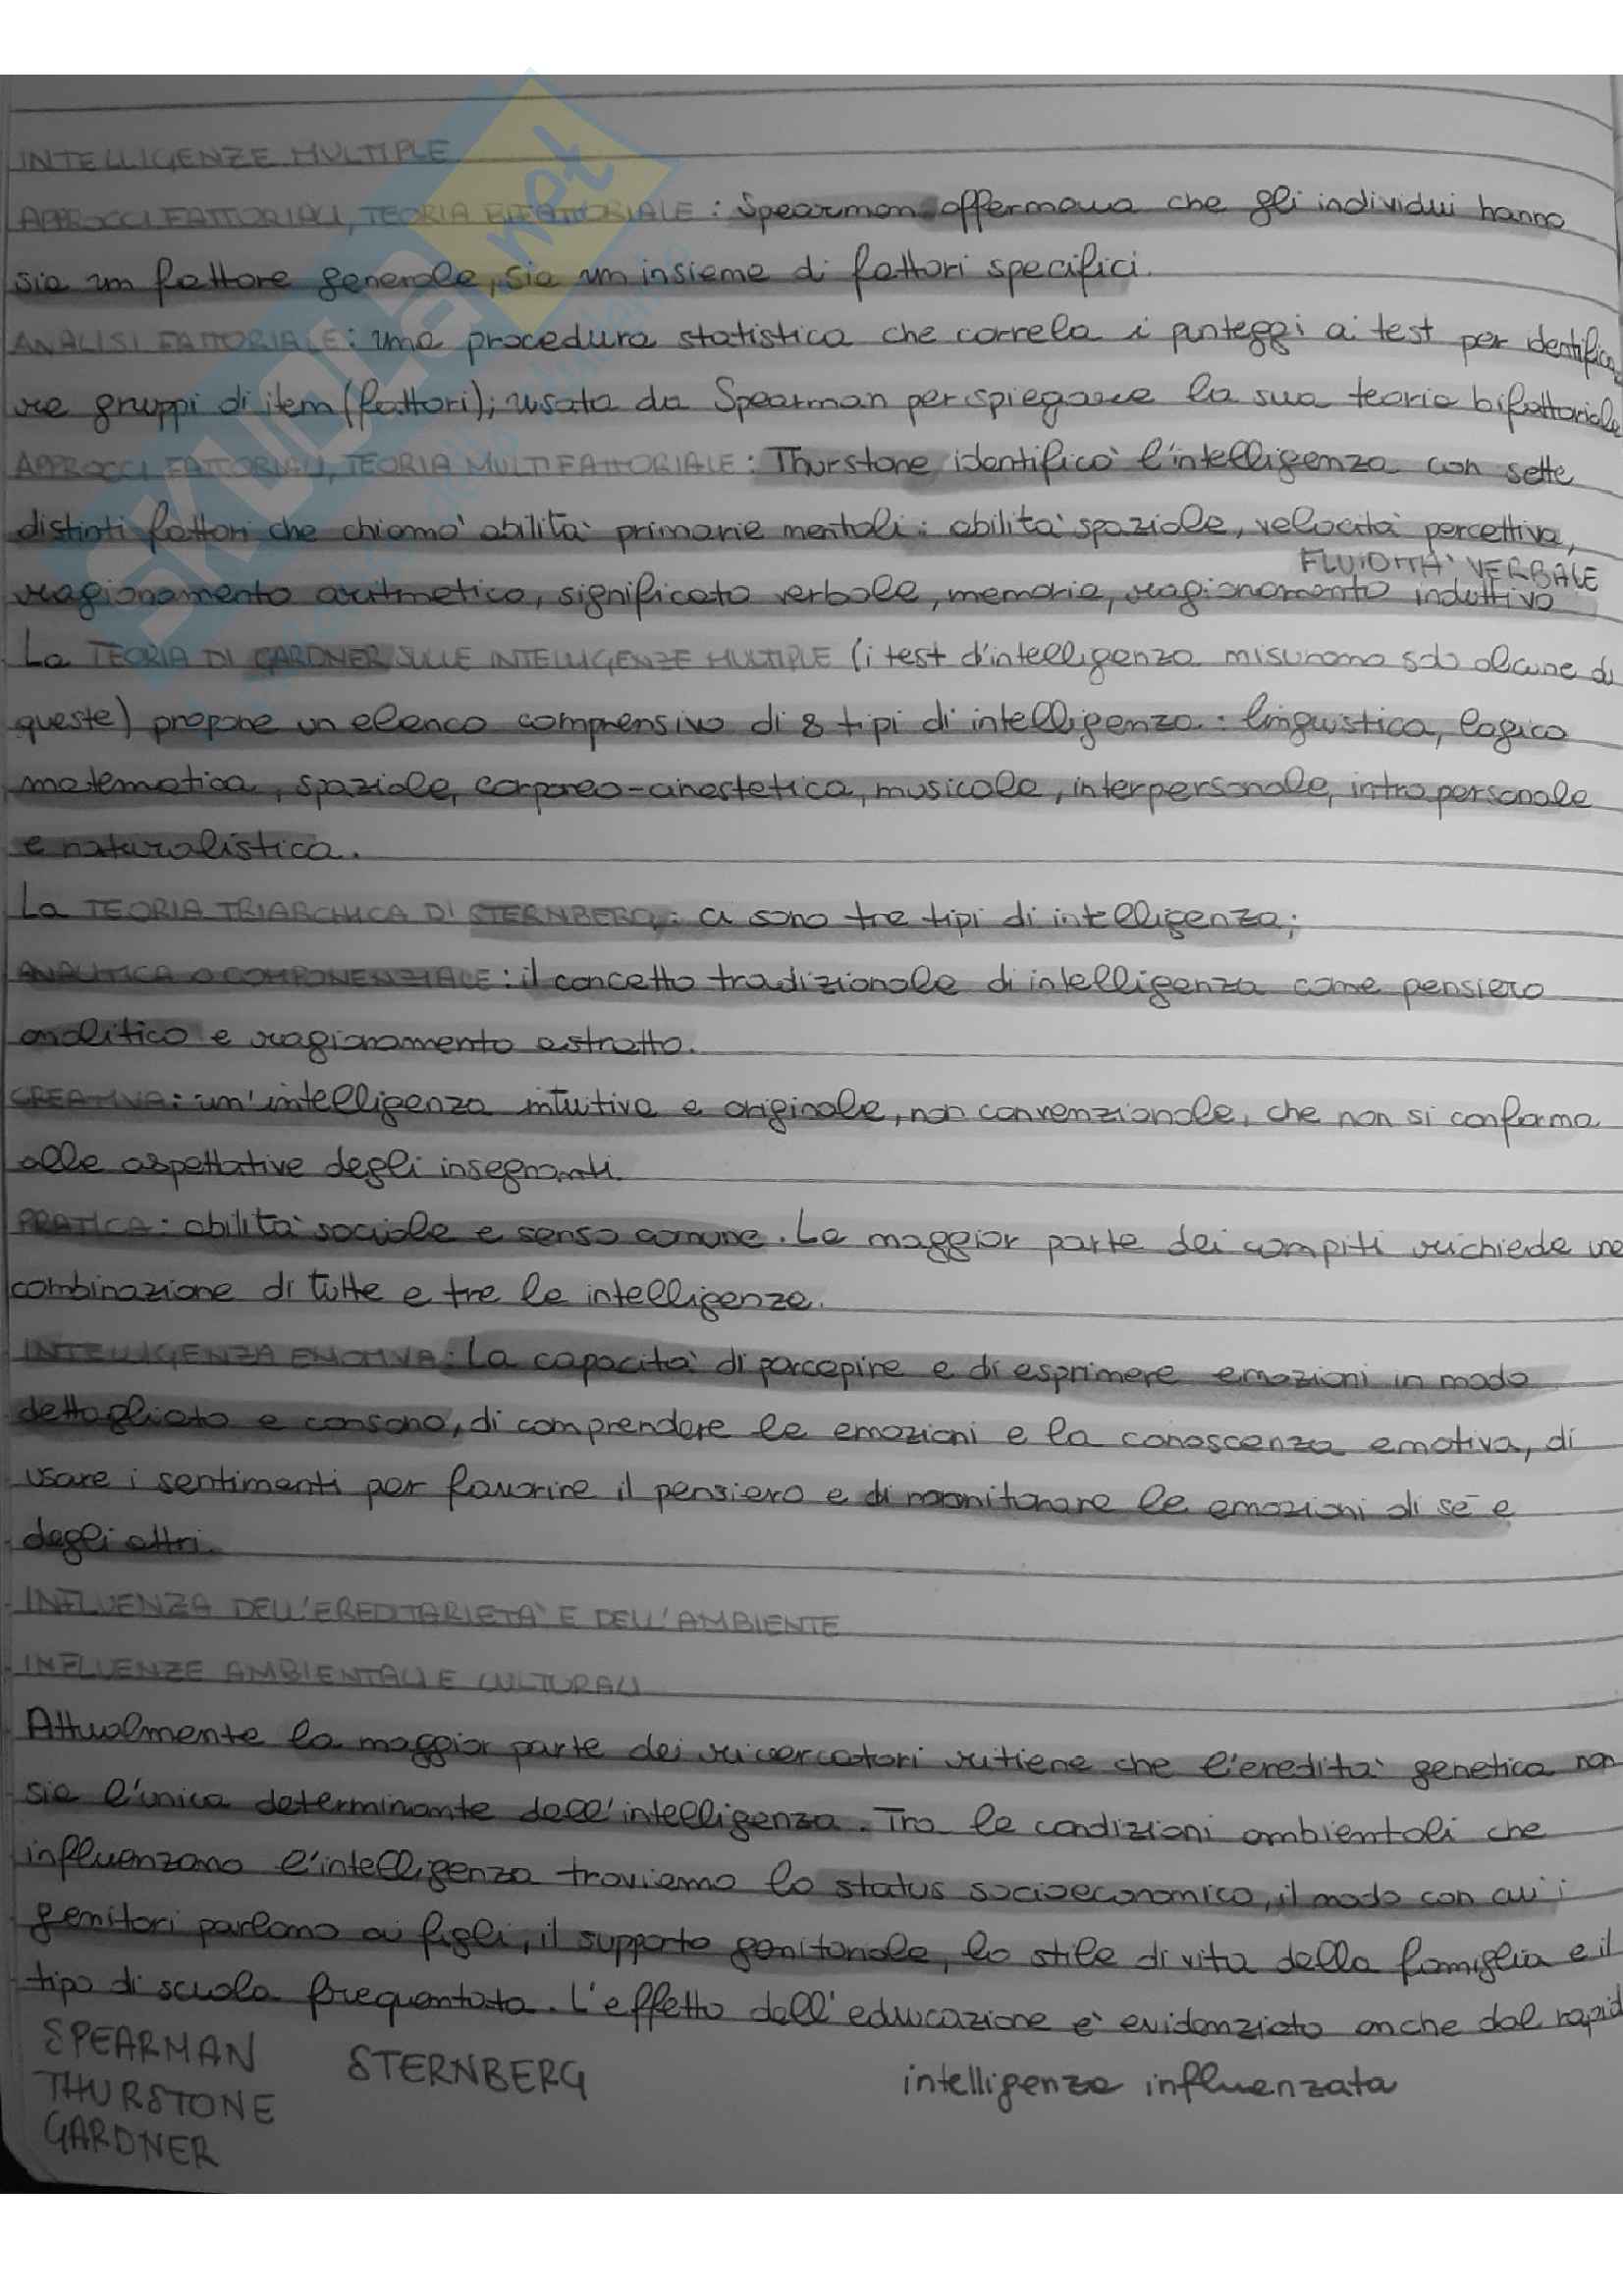 INTELLIGENZE MULTIPLE
APPROCCI FATTORIALI, TEORIA BIFATTORIALE: Spearman affermava che gli individui hanno
sia un fattore generale, sia un insieme di fattori specifici.
ANALISI FATTORIALE: una procedura statistica che correla i punteggi ai test per identifica
re gruppi di item (fattori); usata da Spearman per spiegare la sua teoria bifattoriale
APPROCCI FATTORIALI, TEORIA MULTIFATTORIALE: Thurstone identificò l'intelligenza con sette
distinti fattori che chiamò abilità primarie mentali: abilità spaziale, velocità percettiva,
FLUIDITÀ VERBALE
ragionamento aritmetico, significato verbale, memoria, ragionamento induttivo
La TEORIA DI GARDNER SULLE INTELLIGENZE MULTIPLE (i test d'intelligenza misurano solo alcune di
queste) propone un elenco comprensivo di 8 tipi di intelligenza: linguistica, logico
matematica, spaziale, corporeo-cinestetica, musicale, interpersonale, intrapersonale
e naturalistica.
La TEORIA TRIARCHICA DI STERNBERG: ci sono tre tipi di intelligenza;
ANALITICA O COMPONENZIALE: il concetto tradizionale di intelligenza come pensiero
analitico e ragionamento astratto.
CREATIVA: un'intelligenza intuitiva e originale, non convenzionale, che non si conforma
alle aspettative degli insegnanti.
PRATICA: abilità sociale e senso comune. La maggior parte dei compiti richiede una
combinazione di tutte e tre le intelligenze.
INTELLIGENZA EMOTIVA: La capacità di percepire e di esprimere emozioni in modo
dettagliato e consono, di comprendere le emozioni e la conoscenza emotiva, di
usare i sentimenti per favorire il pensiero e di monitorare le emozioni di sé e
degli altri.
INFLUENZA DELL'EREDITARIETÀ E DELL'AMBIENTE
INFLUENZE AMBIENTALI E CULTURALI
Attualmente la maggior parte dei ricercatori ritiene che l'eredità genetica non
sia l'unica determinante dell'intelligenza. Tra le condizioni ambientali che
influenzano l'intelligenza troviamo lo status socioeconomico, il modo con cui i
genitori parlano ai figli, il supporto genitoriale, lo stile di vita della famiglia e il
tipo di scuola frequentata. L'effetto dell'educazione è evidenziato anche dal rapid
SPEARMAN
THURSTONE
GARDNER
STERNBERG
intelligenza influenzata
SKUOLA.net